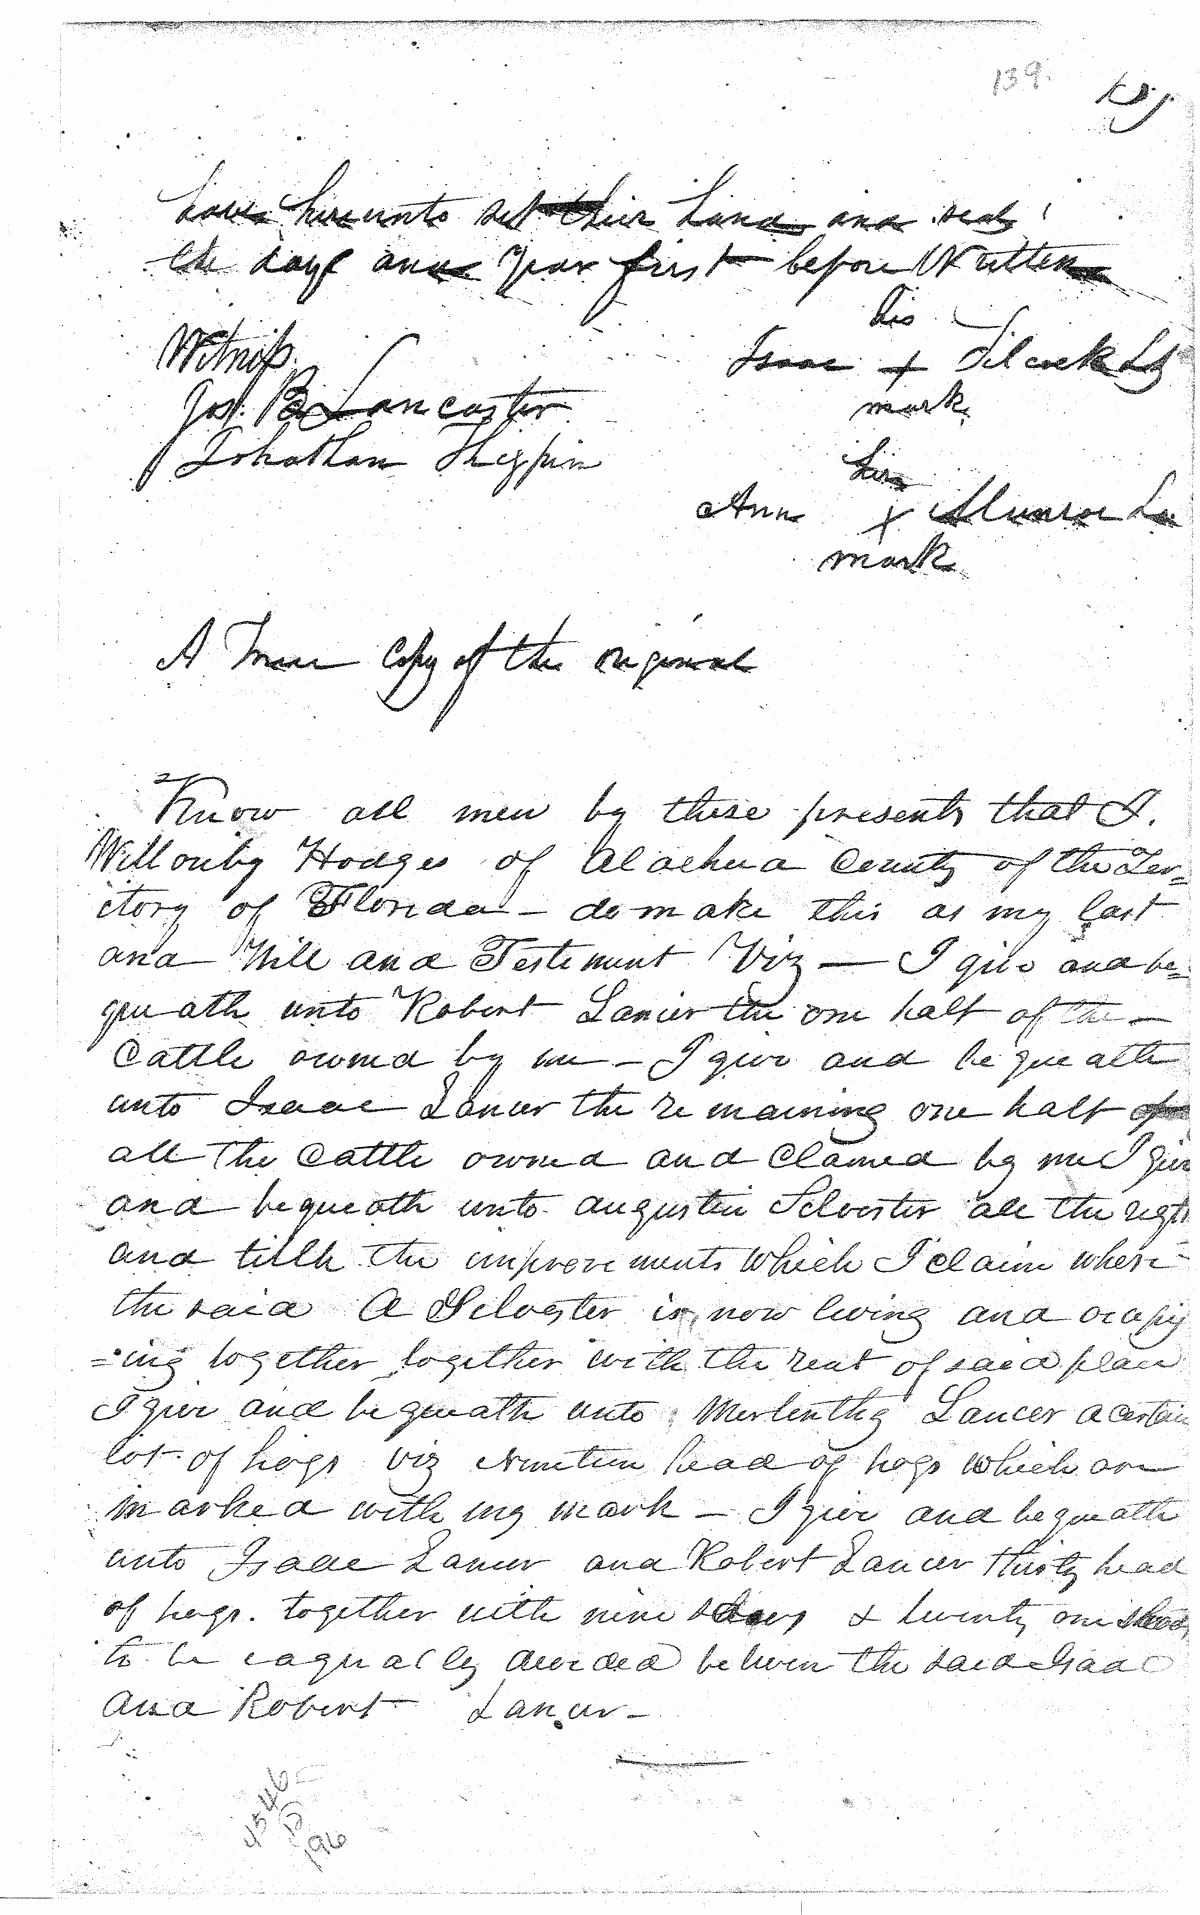 139.
have hereunto set their hands and seals
the day & and Year first before Written
his
Witness.
Isaac + Silcock LS
mark.
Jos. B Lancaster
Johathan Thigpin
her
Ann X Munroe Ls
mark
A True Copy of the original
Know all men by these presents that I.
Willouby Hodges of Alachua County of the Ter=
itory of Florida - do make this as my last
and Will and Testement Viz — I give and be=
queath unto Robert Lanier the one half of the —
Cattle owned by me - I give and bequeath
unto Isaac Lanier the remaining one half of
all the cattle owned and claimed by me I give
and bequeath unto augustin Silvester all the right
and titlle the improvements which I claim where
the said A Silvester is now living and ocapy
=ing together together with the rent of said place
I give and bequeath unto Lanier a certain
lot of hogs viz Nineteen head of hogs which are
marked with my mark - I give and bequeath
unto Isaac Lanier and Robert Lanier thirty head
of hogs. together with nine sows & twenty one shoats
to be eaqually devided between the said Isaac
and Robert Lanier -
4546
B
196